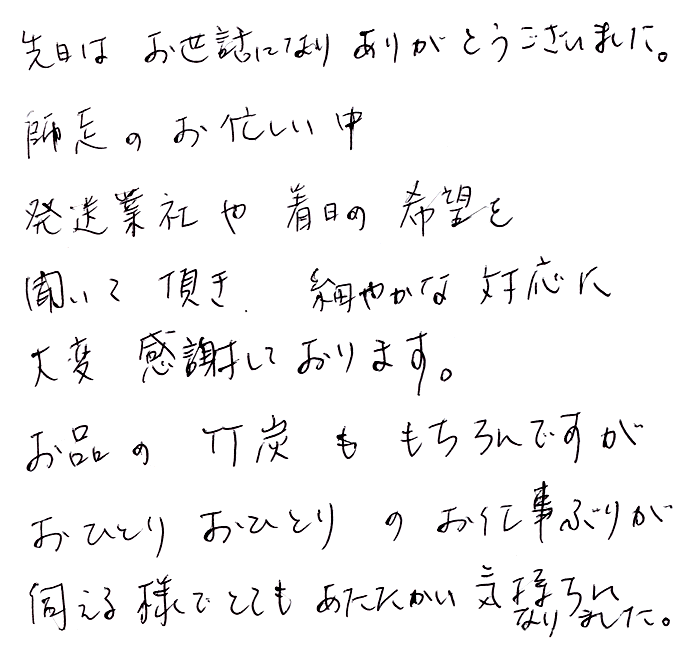 先日は お世話になり ありがとうございました。
師走の お忙しい中
発送業社や 着日の 希望を
聞いて 頂き、 細やかな 対応に
大変 感謝しております。
お品の 竹炭も もちろんですが
おひとり おひとり の お仕事ぶりが
伺える 様で とても あたたかい 気持ちに
なりました。